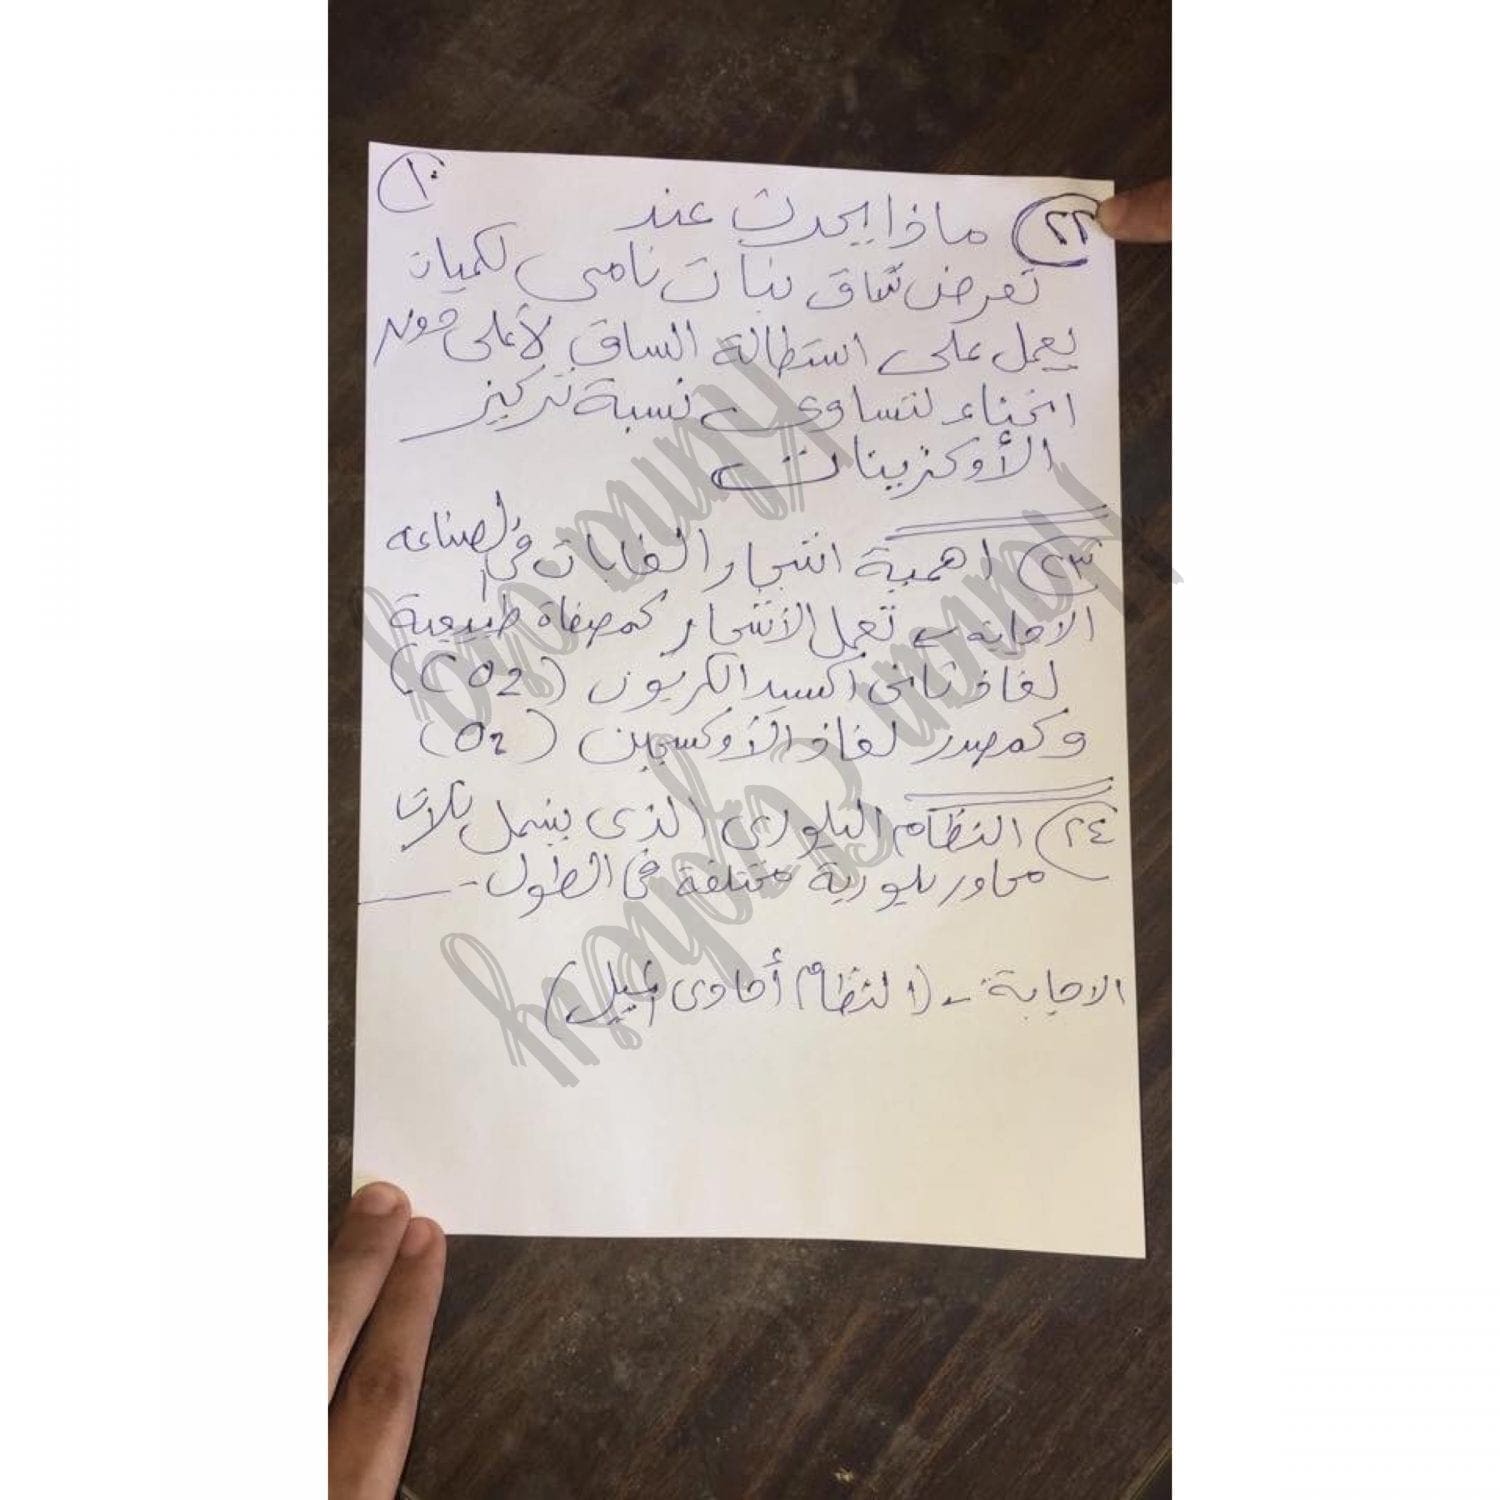 ١٠
٢٢) ماذا يحدث عند
تعرض ساق نبات نامى لكميات
يعمل على استطالة الساق لأعلى دون
انحناء لتساوى نسبة تركيز
الأوكزينات
٢٣) اهمية اشجار الغابات فى الصناعه
الاجابه تعمل الأشجار كمصفاة طبيعية
لغاز ثانى اكسيد الكربون (CO2)
وكمصدر لغاز الأوكسجين (O2)
٢٤) النظام البلورى الذى يشمل ثلاث
محاور بلورية مختلفة فى الطول
الاجابة - (النظام أحادى الميل)